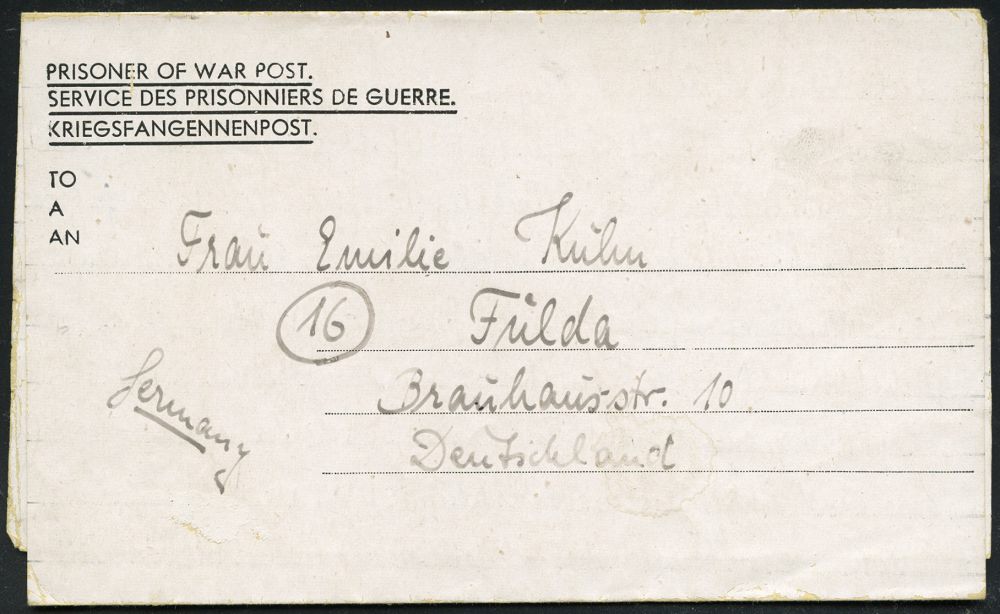 PRISONER OF WAR POST.
SERVICE DES PRISONNIERS DE GUERRE.
KRIEGSFANGENNENPOST.
TO
A
AN
Frau Emilie Kuhn
16 Fulda
Brauhausstr. 10
Germany
Deutschland